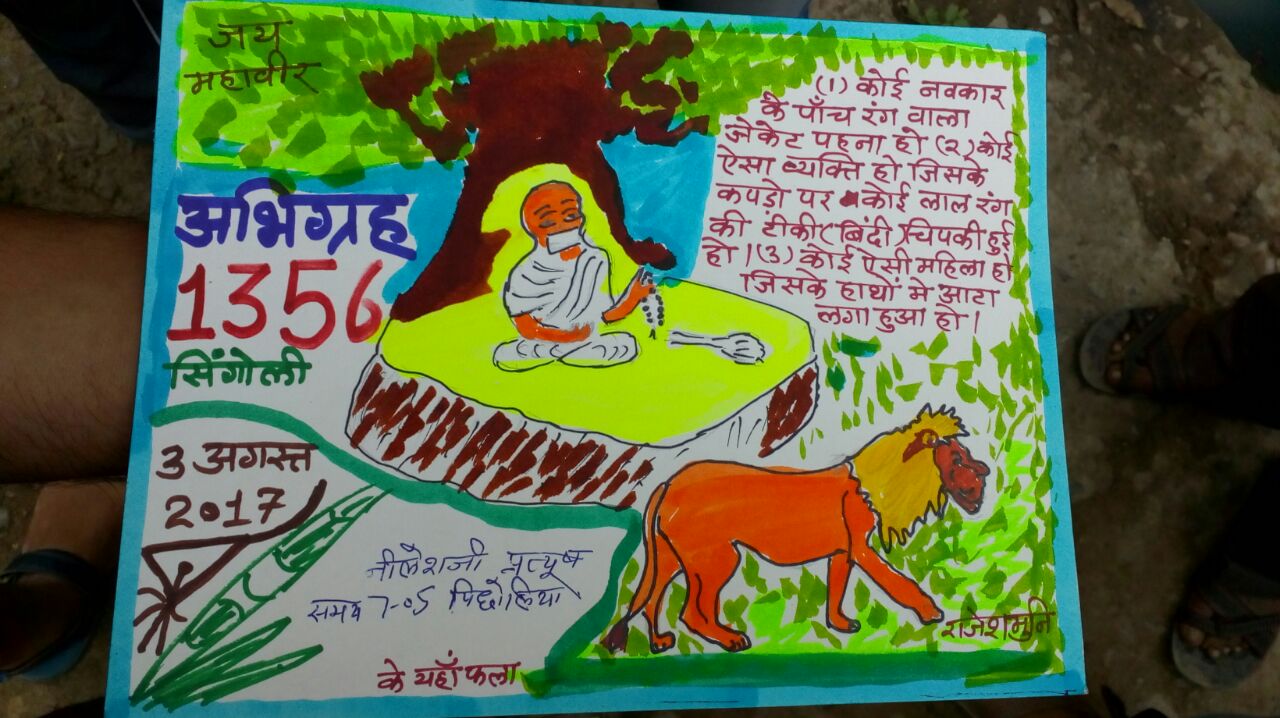 जय
महावीर
अभिग्रह
1356
सिंगोली
3 अगस्त
2017
(1) कोई नवकार
के पाँच रंग वाला
जेकेट पहना हो (२) कोई
ऐसा व्यक्ति हो जिसके
कपड़ो पर कोई लाल रंग
की टीकी (बिंदी) चिपकी हुई
हो । (३) कोई ऐसी महिला हो
जिसके हाथों मे आटा
लगा हुआ हो ।
नीलेशजी प्रत्यूष
समय 7-05 पिछोलिया
के यहाँ फला
राजेशमुनि